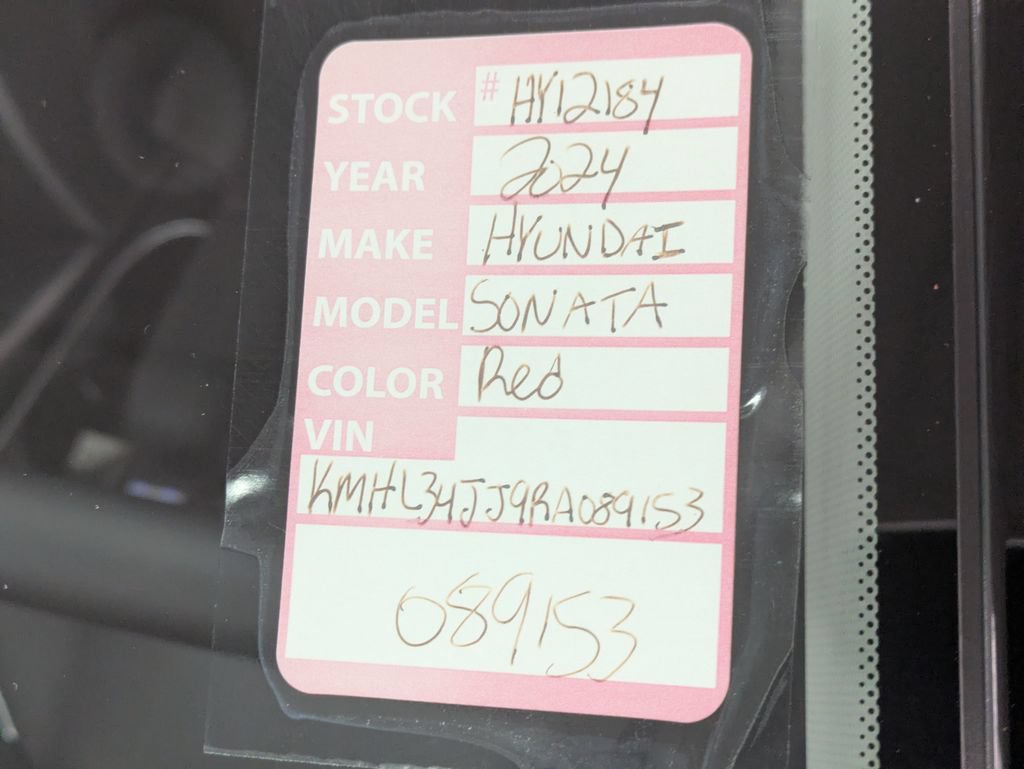 STOCK # HY12184
YEAR 2024
MAKE HYUNDAI
MODEL SONATA
COLOR Red
VIN
KMHL34JJ9RA089153
089153